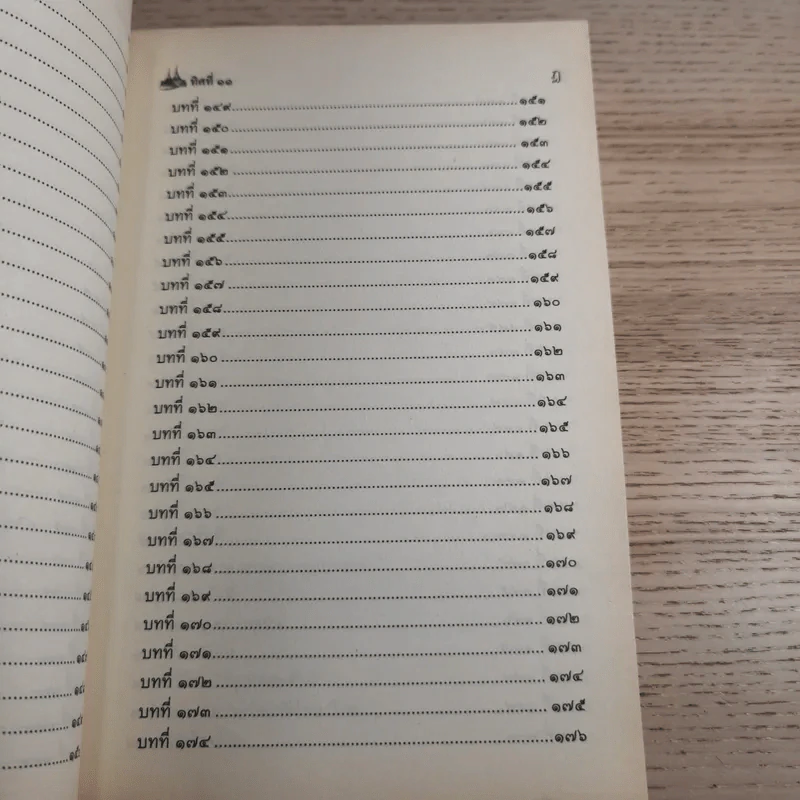 ทิศที่ ๑๑ ฎ
บทที่ ๑๔๙ ๑๕๑
บทที่ ๑๕๐ ๑๕๒
บทที่ ๑๕๑ ๑๕๓
บทที่ ๑๕๒ ๑๕๔
บทที่ ๑๕๓ ๑๕๕
บทที่ ๑๕๔ ๑๕๖
บทที่ ๑๕๕ ๑๕๗
บทที่ ๑๕๖ ๑๕๘
บทที่ ๑๕๗ ๑๕๙
บทที่ ๑๕๘ ๑๖๐
บทที่ ๑๕๙ ๑๖๑
บทที่ ๑๖๐ ๑๖๒
บทที่ ๑๖๑ ๑๖๓
บทที่ ๑๖๒ ๑๖๔
บทที่ ๑๖๓ ๑๖๕
บทที่ ๑๖๔ ๑๖๖
บทที่ ๑๖๕ ๑๖๗
บทที่ ๑๖๖ ๑๖๘
บทที่ ๑๖๗ ๑๖๙
บทที่ ๑๖๘ ๑๗๐
บทที่ ๑๖๙ ๑๗๑
บทที่ ๑๗๐ ๑๗๒
บทที่ ๑๗๑ ๑๗๓
บทที่ ๑๗๒ ๑๗๔
บทที่ ๑๗๓ ๑๗๕
บทที่ ๑๗๔ ๑๗๖